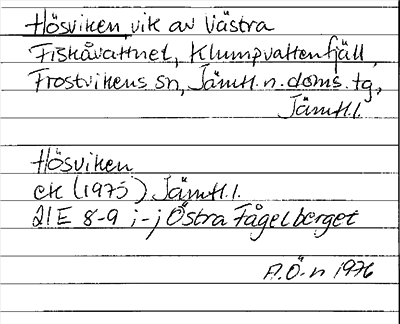 Hösviken, vik av Västra
Fiskåvattnet, Klumpvattenfjäll,
Frostvikens sn, Jämtl. n. doms. tg,
Jämtl. l.
Hösviken
ek (1975) Jämtl. l.
21E 8-9 i-j Östra Fågelberget
A.Ö-n 1976